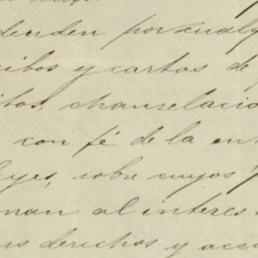 denden por cualq
cibos y cartas de
itos, chanselacio
con fé de la ent
leyes, sobre cuyos
man al interes
us derechos y acci